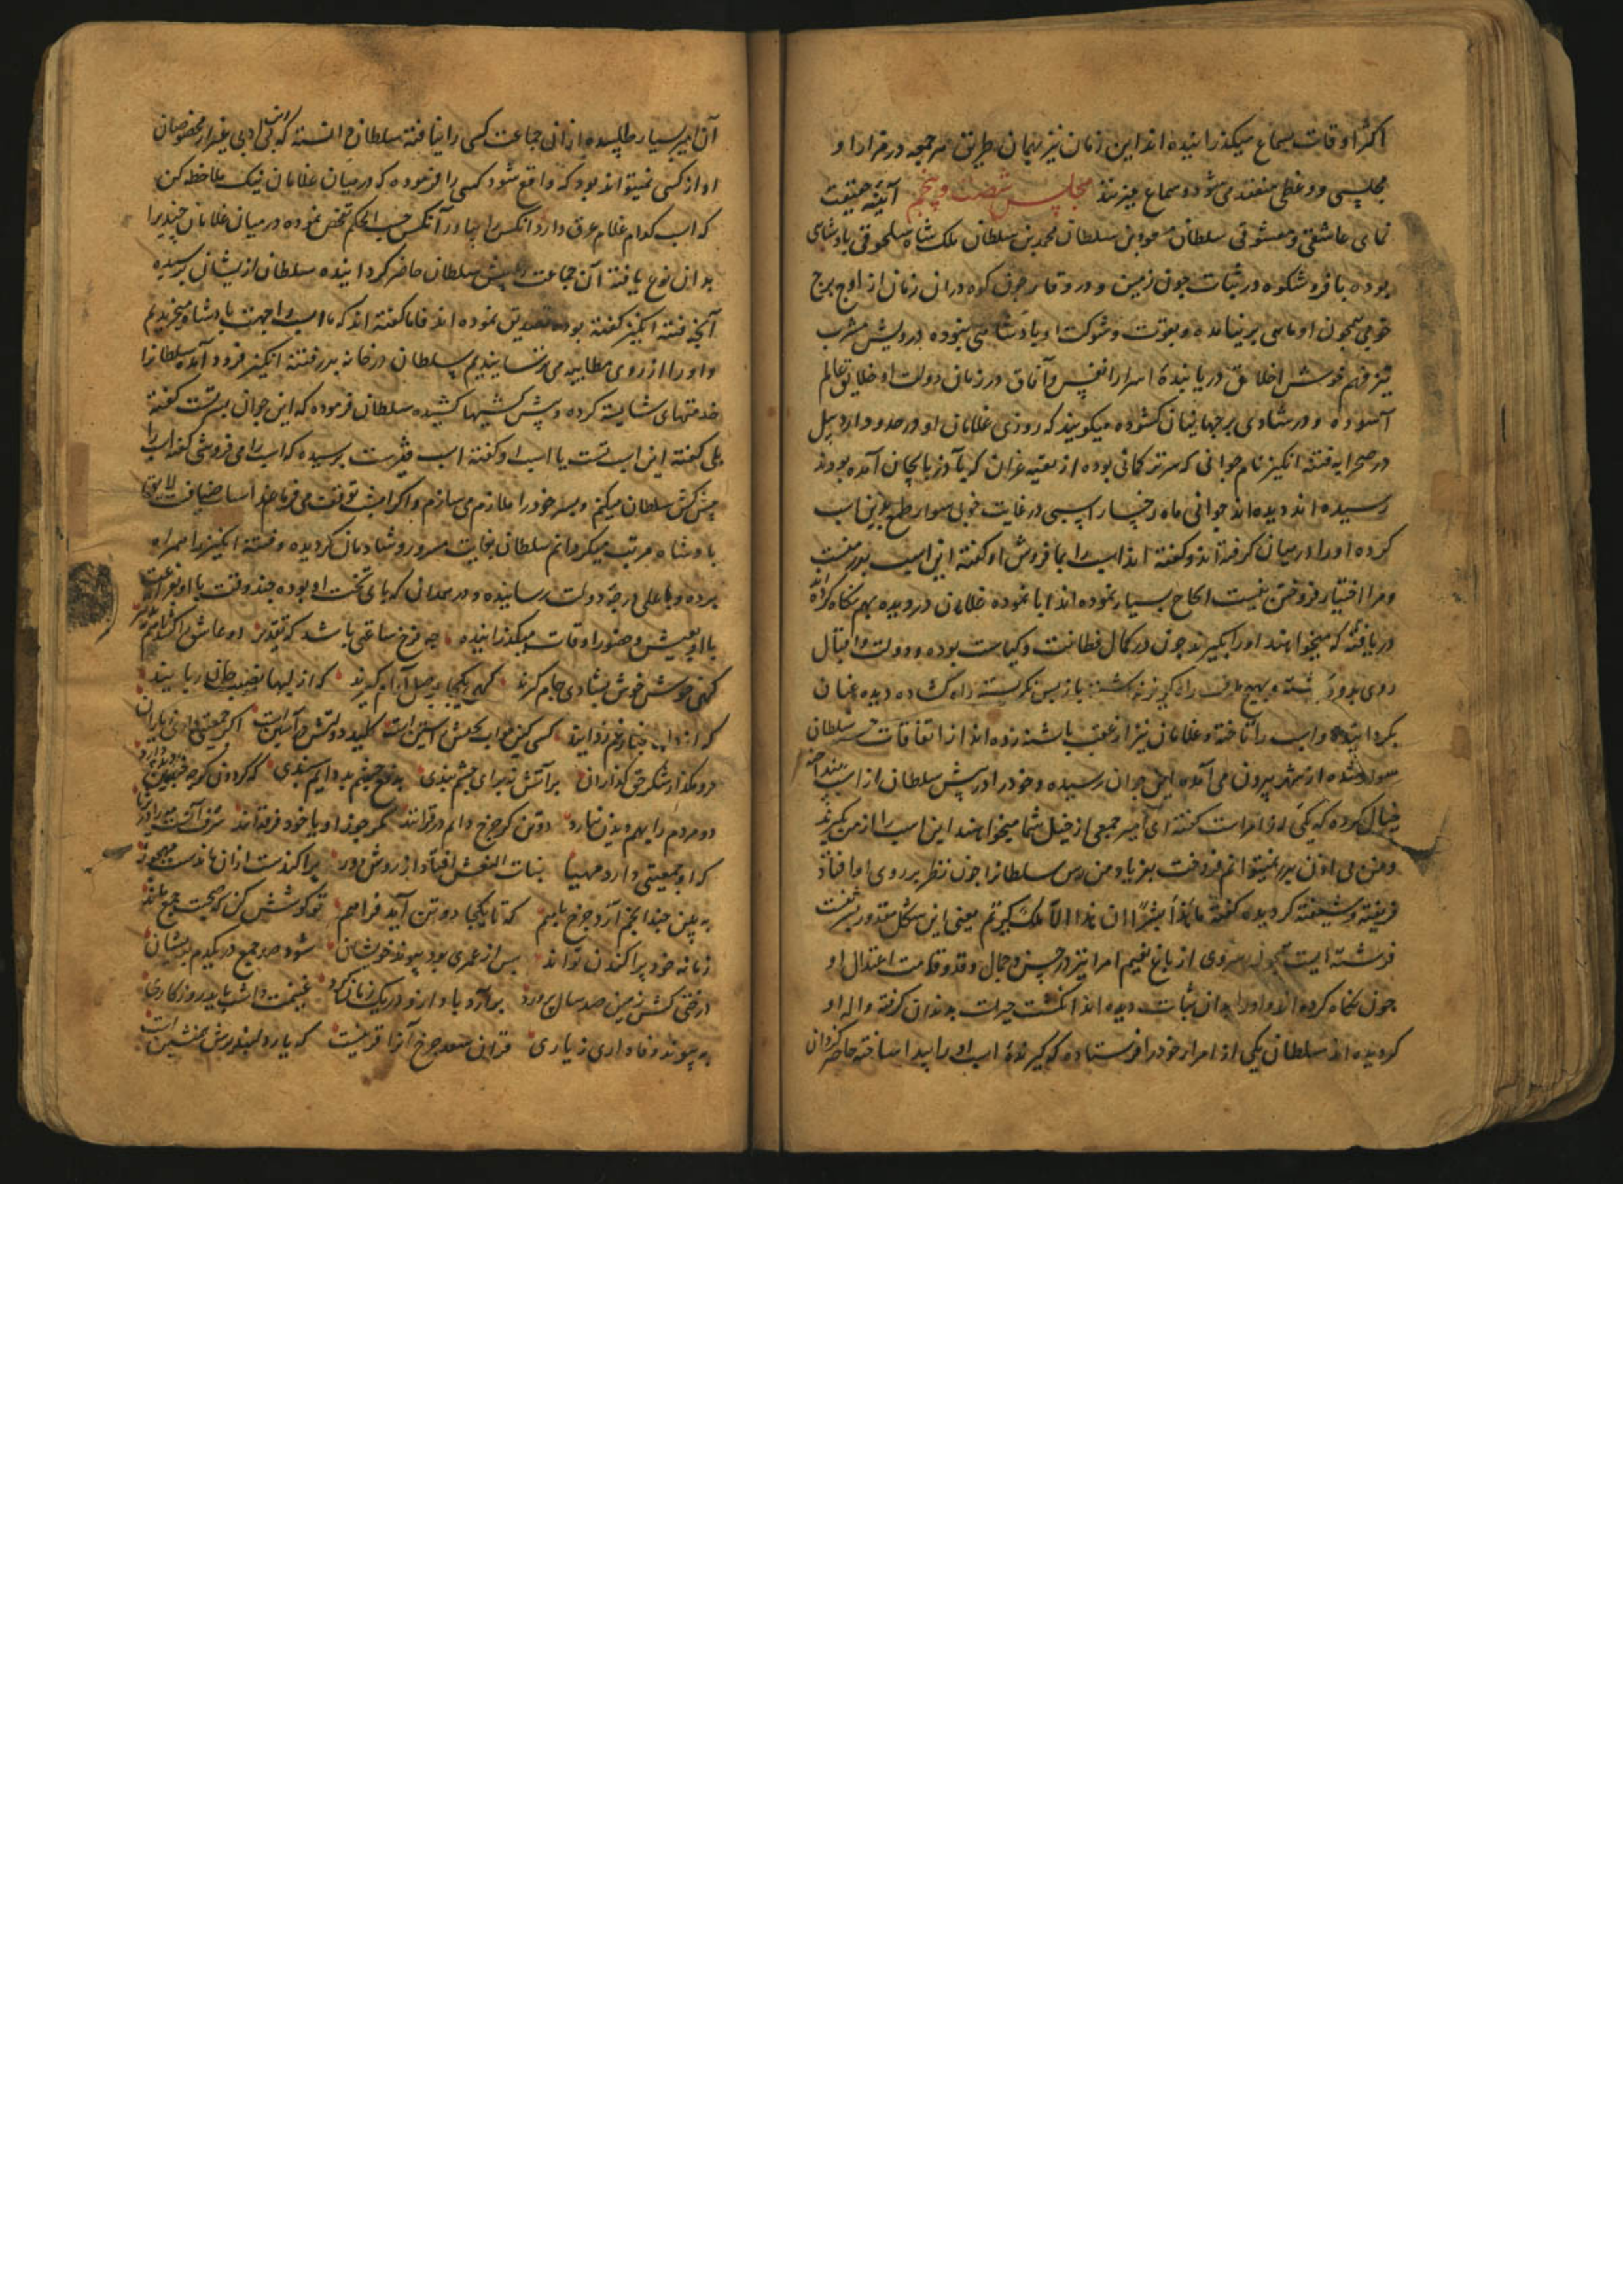 اکثر اوقات بسماع میگذرانیده اند این زمان نیز بهمان طریق هر جمعه در مزار او
مجلسی و وعظی منعقد می شود و سماع میزنند مجلس شصت و پنجم آیینه حقیقت
نمای عاشقی و معشوقی سلطان مسعود بن سلطان محمد بن سلطان ملک شاه سلجوقی پادشاهی
بوده با فر و شکوه در ثبات چون زمین و در وقار چون کوه در آن زمان از اوج برج
خوبی همچون او ماهی بر نیامده و بقوت و شوکت او پادشاهی نبوده درویش مشرب
تیز فهم خوش اخلاق دریابنده اسرار انفس و آفاق در زمان دولت او خلایق عالم
آسوده و در شادی بر جهانیان گشوده میگویند که روزی غلامان او در حدود اردبیل
در صحرا به فتنه انگیز نام جوانی که سرترکمانی بوده از بقیه غزان که بآذربایجان آمده بودند
رسیده اند دیده اند جوانی ماه رخسار اسپی در غایت خوبی سوار طمع بدین اسپ
کرده او را در میان گرفته اند و گفته اند اسپ را بما فروش او گفته این اسپ پدر منست
و مرا اختیار فروختن نیست الحاح بسیار نموده اند ابا نموده غلامان دزدیده بهم نگاه کرده اند
دریافته که میخواهند او را بگیرند چون در کمال فطانت و کیاست بوده و دولت و اقبال
روی بدو داشته و بهیچ طرف راه گریز نداشته باز پس نگریسته راه گشاده دیده عنان
بگردانیده و اسپ را تاخته و غلامان نیز از عقب پاشنه زده اند از اتفاقات حسنه سلطان
سوار شده از شهر بیرون می آمده این جوان رسیده و خود را در پیش سلطان از اسپ انداخته
خیال کرده که یکی از امراست گفته ای امیر جمعی از خیل شما میخواهند این اسپ را از من بگیرند
و من بی اذن پدر نمیتوانم فروخت بفریاد من رس سلطان را چون نظر بر روی او افتاد
فریفته و شیفته گردیده گفته ما هذا بشرا ان هذا الا ملک کریم یعنی این شکل مقدور بشر نیست
فرشته ایت سروی از باغ نعیم امرا نیز در حسن و جمال و قد و قامت اعتدال او
چون نگاه کرده او را بدان ثبات دیده اند انگشت حیرت بدندان گرفته واله او
گردیده اند سلطان یکی از امرار خود را فرستاده که گیرنده اسپ او را پیدا ساخته حاضر گردان
آن امیر بسیار طلبیده از آن جماعت کسی را نیافته سلطان دانسته که این بی ادبی بغیر از مخصوصان
او از کسی نمیتواند بود که واقع شود کسی را فرموده که در میان غلامان نیک ملاحظه کن
که اسپ کدام غلام عرق دارد آنکس را بیاور آنکس حسب الحکم تفحص نموده در میان غلامان چندیرا
بدان نوع یافته آن جماعت را پیش سلطان حاضر گردانیده سلطان ازیشان پرسیده
آنچه فتنه انگیز گفته بوده تصدیق نموده اند فاما گفته اند که ما اسپ را جهت پادشاه میخریدیم
و او را از روی مطایبه می ترسانیدیم سلطان در خانه پدر فتنه انگیز فرود آمده سلطانرا
خدمتهای شایسته کرده و پیش کشیها کشیده سلطان فرموده که این جوان پسر تست گفته
بلی گفته این اسپ تست یا اسپ او گفته اسپ منست پرسیده که اسپ را می فروشی گفته اسپ را
پیش کش سلطان میکنم و پسر خود را ملازم می سازم و اگر امشب توقف می فرمایند اسباب ضیافت لایق
پادشاه مرتب میگردانم سلطان بغایت مسرور و شادمان گردیده و فتنه انگیز را همراه
برده و باعلی درجه دولت رسانیده و در همدان که پای تخت او بوده چند وقت با او بفراغت
با او بعیش و حضور اوقات میگذرانیده چه فرخ ساعتی باشد که تقدیر دو عاشق را
گهی خوش خوش بشادی جام گیرند گهی یکجا بوصل آرام گیرند که از لبها بقصد جان ربایند
کسی کین خواب بختش آستین است کلید دولتش در آستین است اگر جمعیتی داری ز یاران
فرو مگذار شکر حق گذاران بر آتش نه برای چشم بندی بدفع چشم بد دایم سپندی که گردون گرچه
دو مردم را بهم دیدن نیارد دو تن کز چرخ دایم در قرانند مگر جوزا و یا خود فرقدانند
که او جمعیتی دارد مهیا بنات النعش افتاد از روش دور پراکندست از آن ماندست مهجور
به بین چند انجم آرد چرخ با هم که تا یکجا دو تن آید فراهم تو کوشش کن که صحبت جمع
زمانه خود پراکندن تواند پس از عمری بود پیوند خویشان شود هر جمع در یکدم پریشان
درختی کش زمین صد سال پرورد برآرد باد ازو در یک زمان گرد غنیمت داشت باید روزگاری را
به پیوند وفاداری ز یاری قران سعد چرخ آنرا قرینست که یار دلپذیرش همنشین است